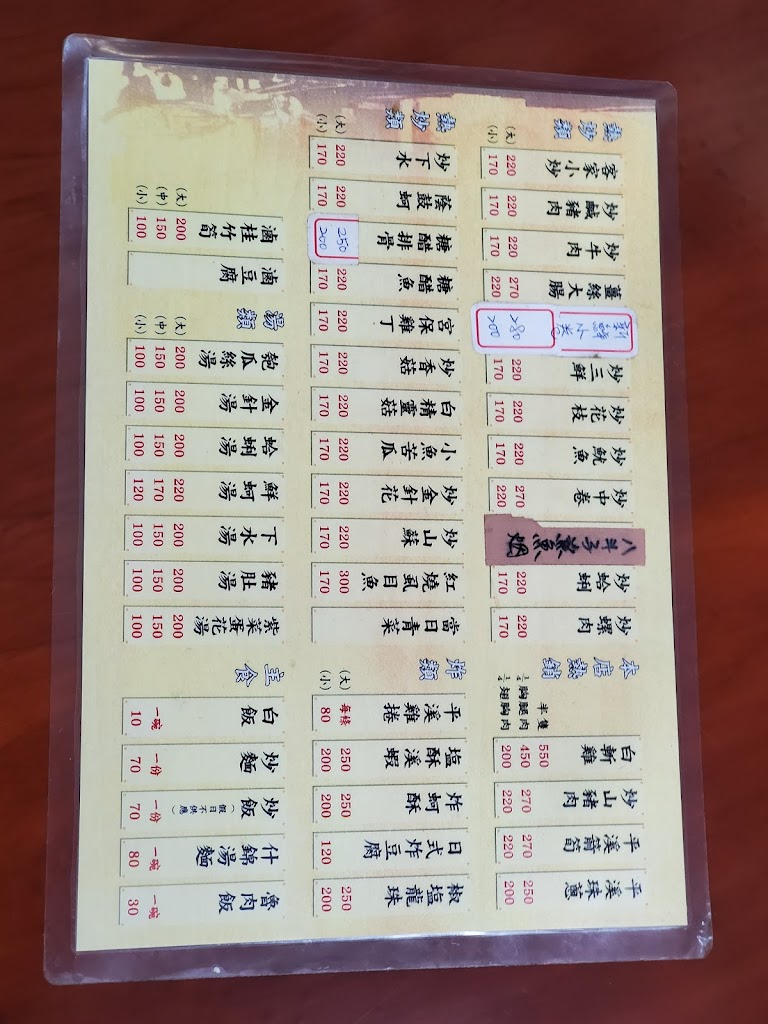 熱炒類
(大)
(小)
客家小炒
220
170
炒鹹豬肉
220
170
炒牛肉
220
170
薑絲大腸
270
220
新鮮小卷
280
200
炒三鮮
220
170
炒花枝
220
170
炒魷魚
220
170
炒中卷
270
220
八斗子鯊魚烟
炒蛤蜊
220
170
炒螺肉
220
170
本店熱銷
半隻
¼胸腿肉
¼翅胸肉
白斬雞
550
450
200
炒山豬肉
270
220
平溪箭筍
270
220
平溪珠蔥
250
200
熱炒類
(大)
(小)
炒下水
220
170
蔭鼓蚵
220
170
糖醋排骨
250
200
糖醋魚
220
170
宮保雞丁
220
170
炒香菇
220
170
白精靈菇
220
170
小魚苦瓜
220
170
炒金針花
220
170
炒山蘇
220
170
紅燒虱目魚
300
170
當日青菜
炸類
(大)
(小)
平溪雞捲
每條
80
塩酥溪蝦
250
200
炸蚵酥
250
200
日式炸豆腐
120
椒塩龍珠
250
200
(大)
(中)
(小)
滷桂竹筍
200
150
100
滷豆腐
湯類
(大)
(中)
(小)
匏瓜絲湯
200
150
100
金針湯
200
150
100
蛤蜊湯
200
150
100
鮮蚵湯
220
170
120
下水湯
200
150
100
豬肚湯
200
150
100
紫菜蛋花湯
200
150
100
主食
白飯
一碗
10
炒麵
一份
70
炒飯
(假日不供應)
一份
70
什錦湯麵
一碗
80
魯肉飯
一碗
30